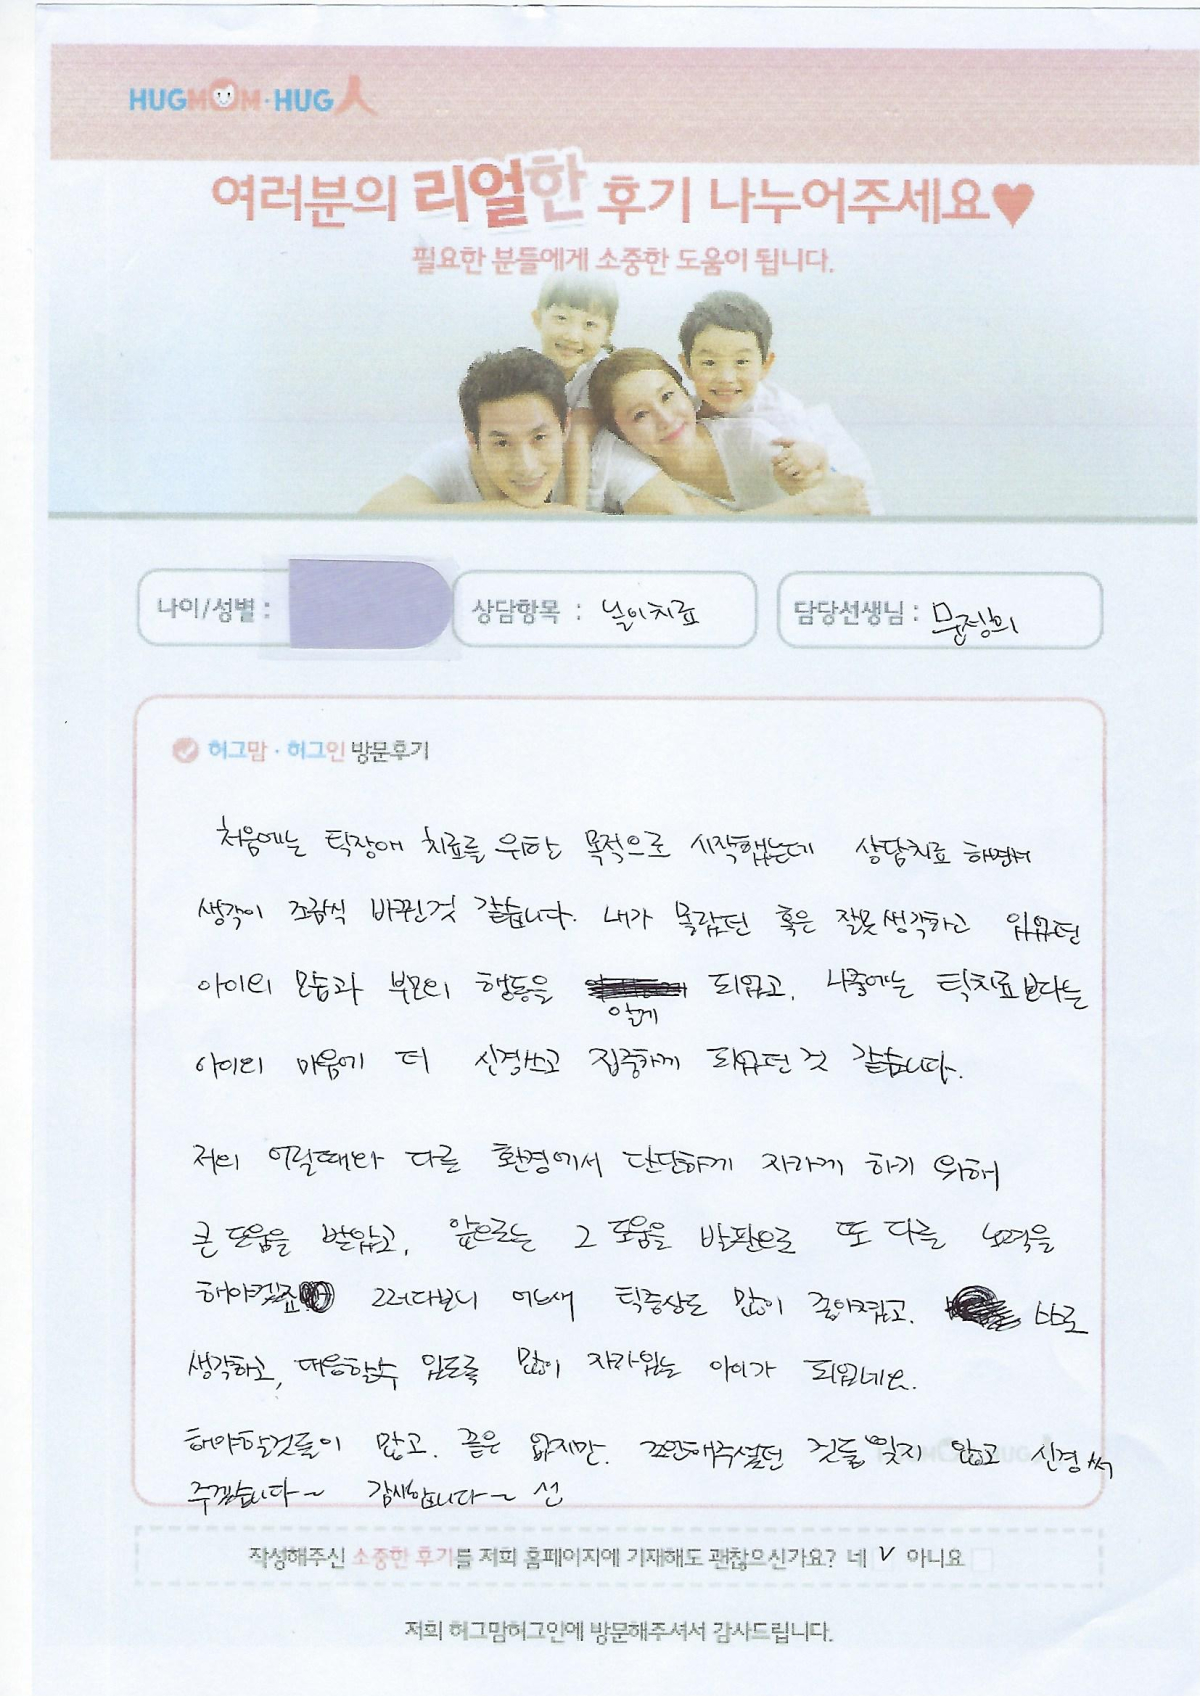 HUGMOM·HUG人
여러분의 리얼한 후기 나누어주세요♥
필요한 분들에게 소중한 도움이 됩니다.
나이/성별 :
상담항목 : 놀이치료
담당선생님 : 문정희
허그맘·허그인 방문후기
처음에는 틱장애 치료를 위한 목적으로 시작했는데 상담치료 하면서
생각이 조금씩 바뀐것 같습니다. 내가 몰랐던 혹은 잘못생각하고 있었던
아이의 모습과 부모의 행동을 알게 되었고, 나중에는 틱치료보다는
아이의 마음에 더 신경쓰고 집중하게 되었던 것 같습니다.
저의 어릴때와 다른 환경에서 단단하게 자라게 하기 위해
큰 도움을 받았고, 앞으로는 그 도움을 발판으로 또 다른 노력을
해야겠죠 그러다보니 어느새 틱증상도 많이 줄어졌고. 바로
생각하고, 대응할수 있도록 많이 자라있는 아이가 되었네요.
해야할것들이 많고. 끝은 없지만. 조언해주셨던 것들 잊지 않고 신경써
주겠습니다~ 감사합니다~
작성해주신 소중한 후기를 저희 홈페이지에 기재해도 괜찮으신가요? 네 V 아니요
저희 허그맘허그인에 방문해주셔서 감사드립니다.